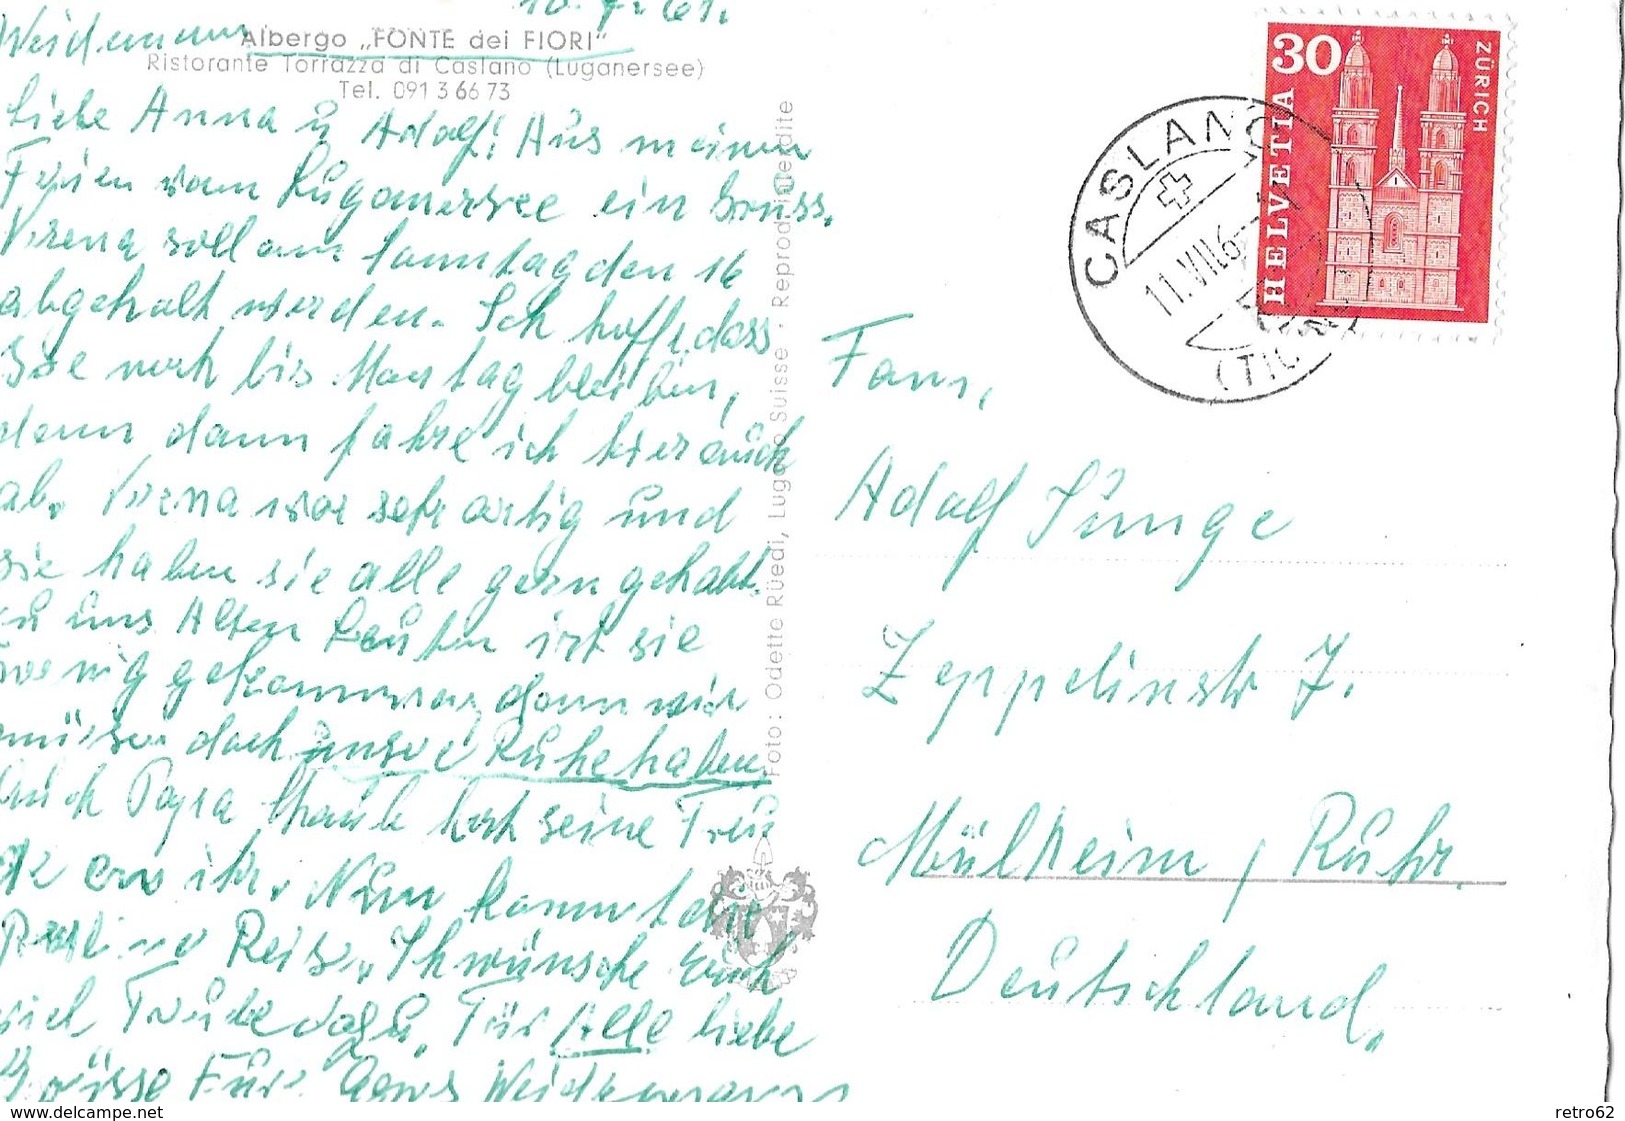 10.7.61.
Weidemann
Albergo „FONTE dei FIORI“
Ristorante Torrazza di Caslano (Luganersee)
Tel. 091 3 66 73
Liebe Anna u Adolf! Aus meinen
Ferien vom Luganersee ein Gruss.
Verena soll am Sonntag den 16
abgeholt werden. Ich hoffe dass
Sie noch bis Montag bleiben,
denn dann fahre ich hier auch
ab. Verena war sehr artig und
sie haben sie alle gern gehabt.
zu uns Alten Leuten ist sie
wenig gekommen, denn wir
müssen doch unsere Ruhe haben
Auch Papa Straub hat seine
an ihr. Nun kommt
Reise. Ich wünsche Euch
viel Freude dazu. Für Alle liebe
Grüsse Eure Agnes Weidemann
Foto: Odette Rüedi, Lugano Suisse - Reprod. interdite
30
HELVETIA
ZÜRICH
CASLANO
11.VII.6
(TIC
Fam.
Adolf Junge
Zeppelinstr 7.
Mülheim / Ruhr.
Deutschland.
delcampe.net
retro62